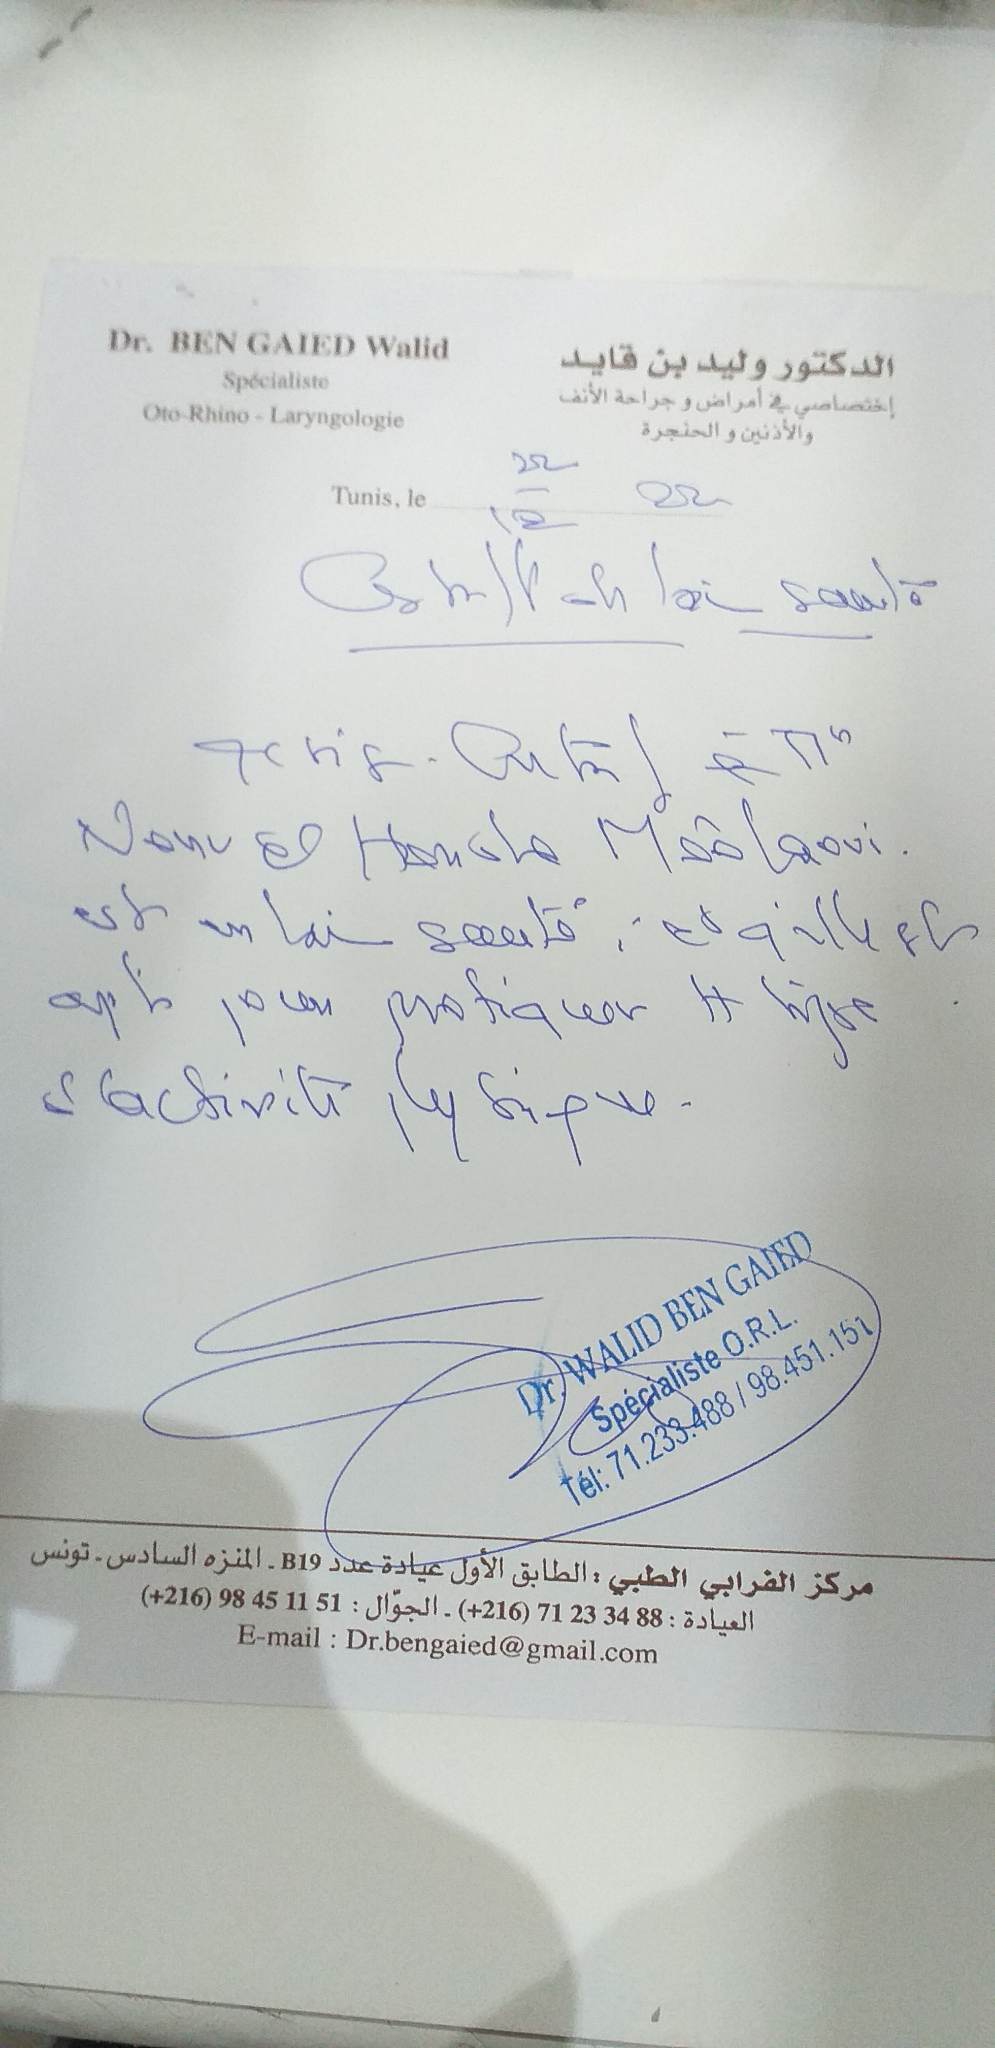 Dr. BEN GAIED Walid
Spécialiste
Oto-Rhino - Laryngologie
الدكتور وليد بن قايد
إختصاصي في أمراض و جراحة الأنف
والأذنين و الحنجرة
Tunis, le 22 / 12 22
Certificat de bonne santé
certifie que
Nour El Houda
est en bonne santé, et qu'elle est
apte pour pratiquer tt type
d'activité physique.
Dr. WALID BEN GAIED
Spécialiste O.R.L.
Tél: 71.233.488 / 98.451.151
مركز الفرابي الطبي : الطابق الأول عيادة عدد B19 - المنزه السادس - تونس
العيادة : 88 34 23 71 (216+) - الجوّال : 51 11 45 98 (216+)
E-mail : Dr.bengaied@gmail.com